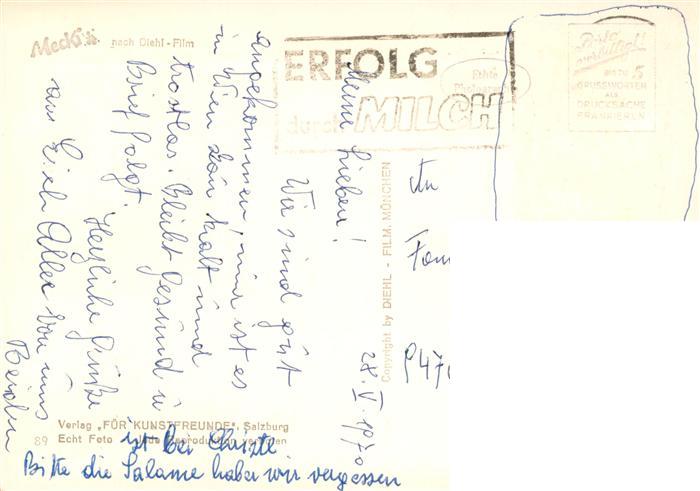 Mecki nach Diehl - Film
ERFOLG
durch MILCH
Echte Photogr
Porto
verbilligt!
BIS ZU 5
GRUSSWORTEN
ALS
DRUCKSACHE
FRANKIEREN
28.V.1970
Meine Lieben!
Wir sind gut
angekommen, nur ist es
in Wien kalt und
trostlos. Bleibt gesund u
Brief folgt.
Herzliche Grüße
an Euch Alle von uns
Beiden
An
Fam
Copyright by DIEHL - FILM, MÜNCHEN
Verlag „FÖR KUNSTFREUNDE", Salzburg
89 Echt Foto - Jede Reproduktion verboten
ist bei Christl
Bitte die Salame haben wir vergessen